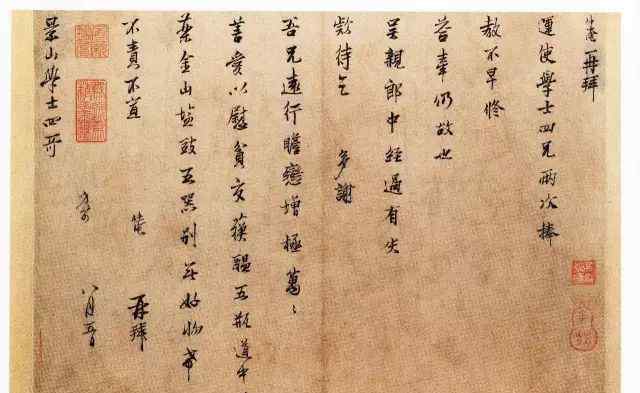 再拜
運使學士四兄兩次捧
教不早修
答奉仍故也
吳親郎中經過有失
款待乞 多謝
吾兄遠行瞻戀增極萬萬
善愛以慰貧交蘇醞五瓶道中
金山鹽豉五器別無好物希
不責不宣 再拜
景山學士四哥
八月五日